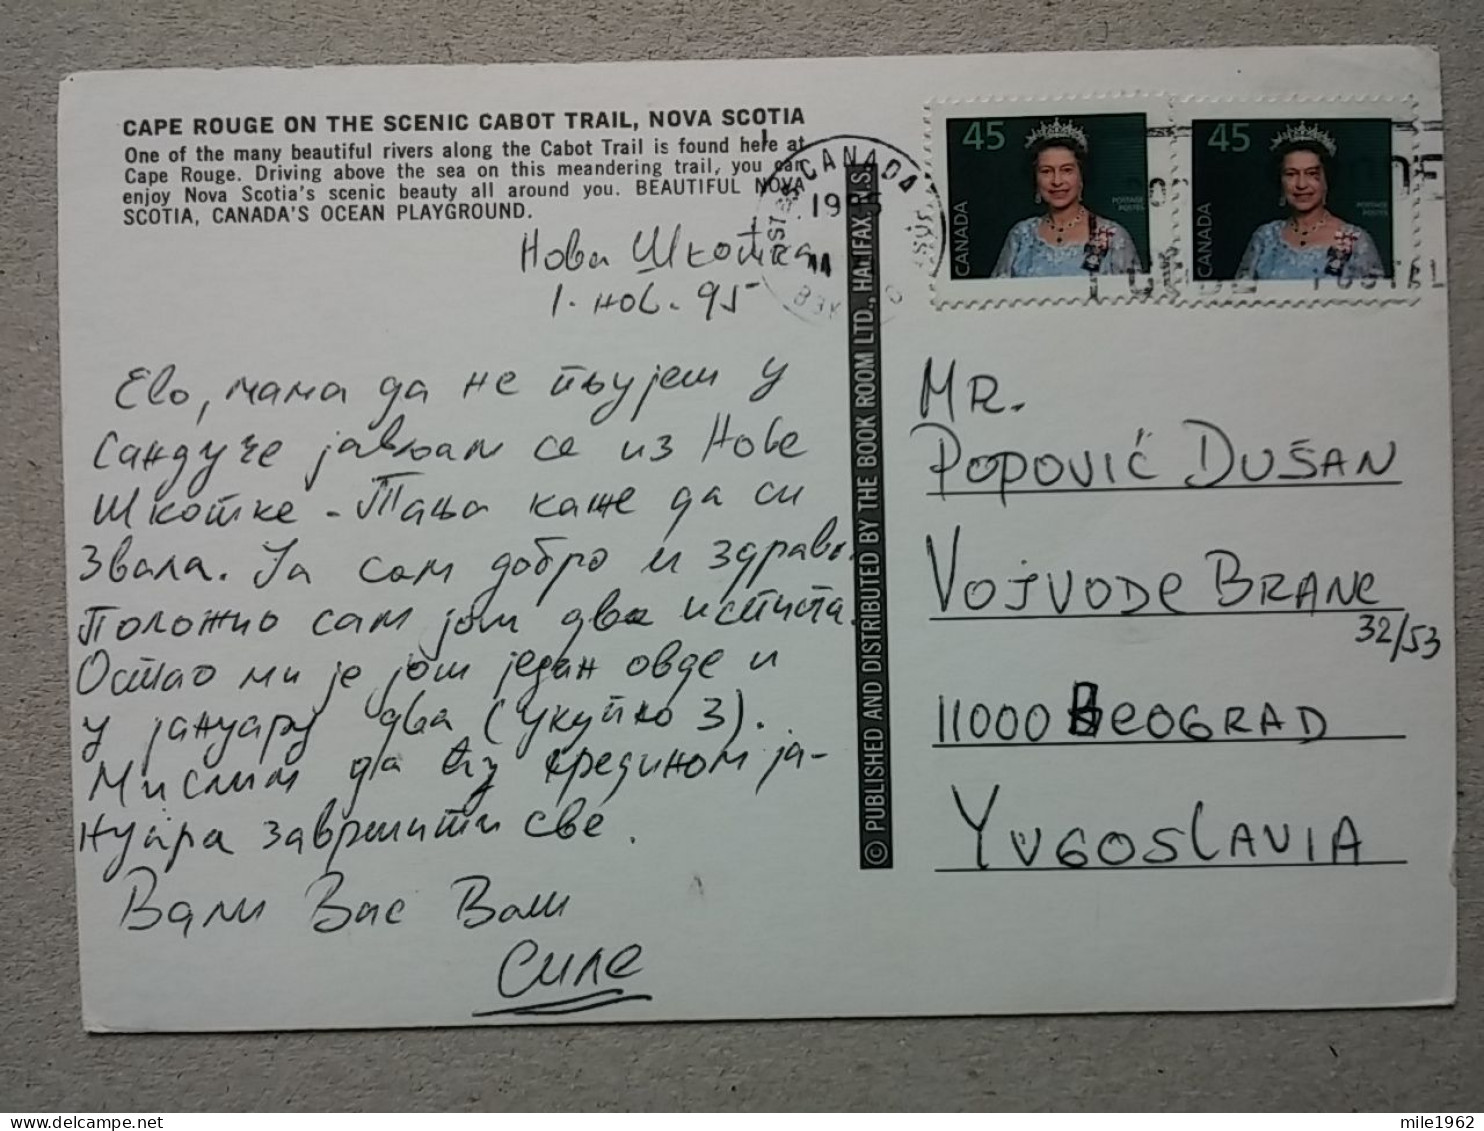 CAPE ROUGE ON THE SCENIC CABOT TRAIL, NOVA SCOTIA
One of the many beautiful rivers along the Cabot Trail is found here at
Cape Rouge. Driving above the sea on this meandering trail, you can
enjoy Nova Scotia's scenic beauty all around you. BEAUTIFUL NOVA
SCOTIA, CANADA'S OCEAN PLAYGROUND.
Нова Шкотска
1. нов. 95
Ево, мама да не пљујеш у
сандуче јављам се из Нове
Шкотске - Тања каже да си
звала. Ја сам добро и здраво.
Положио сам још два испита.
Остао ми је још један овде и
у јануару два (укупно 3).
Мислим да ћу средином ја-
нуара завршити све.
Воли Вас Ваш
Силе
© PUBLISHED AND DISTRIBUTED BY THE BOOK ROOM LTD., HALIFAX, N.S.
CANADA
45
CANADA
POSTAGE
POSTES
45
CANADA
POSTAGE
POSTES
POSTAL
MR.
POPOVIĆ DUŠAN
VOJVODE BRANE
32/53
11000 BEOGRAD
YUGOSLAVIA
mile1962